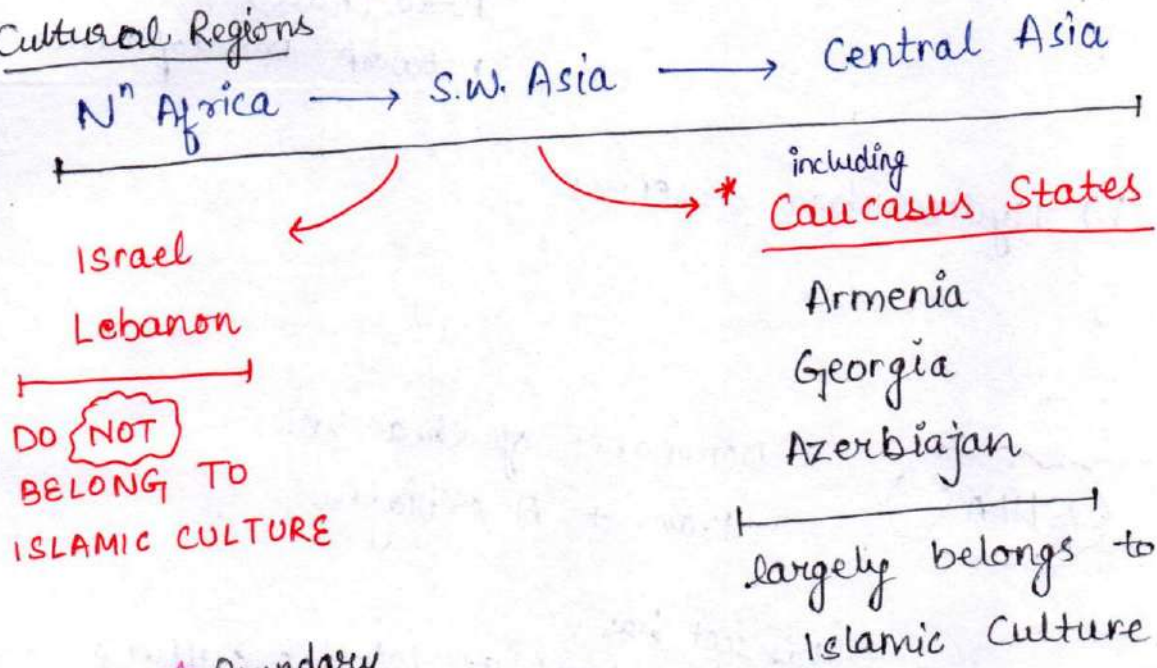 Cultural Regions
Nⁿ Africa → S.W. Asia → Central Asia
Israel
Lebanon
DO NOT
BELONG TO
ISLAMIC CULTURE
* including
Caucasus States
Armenia
Georgia
Azerbiajan
largely belongs to
Islamic Culture
Boundary